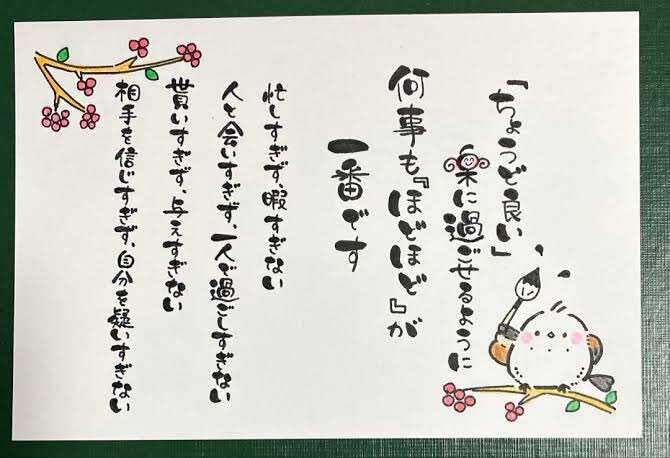 「ちょうど良い」
楽に過ごせるように
何事も『ほどほど』が
一番です
忙しすぎず、暇すぎない
人と会いすぎず、一人で過ごしすぎない
貰いすぎず、与えすぎない
相手を信じすぎず、自分を疑いすぎない